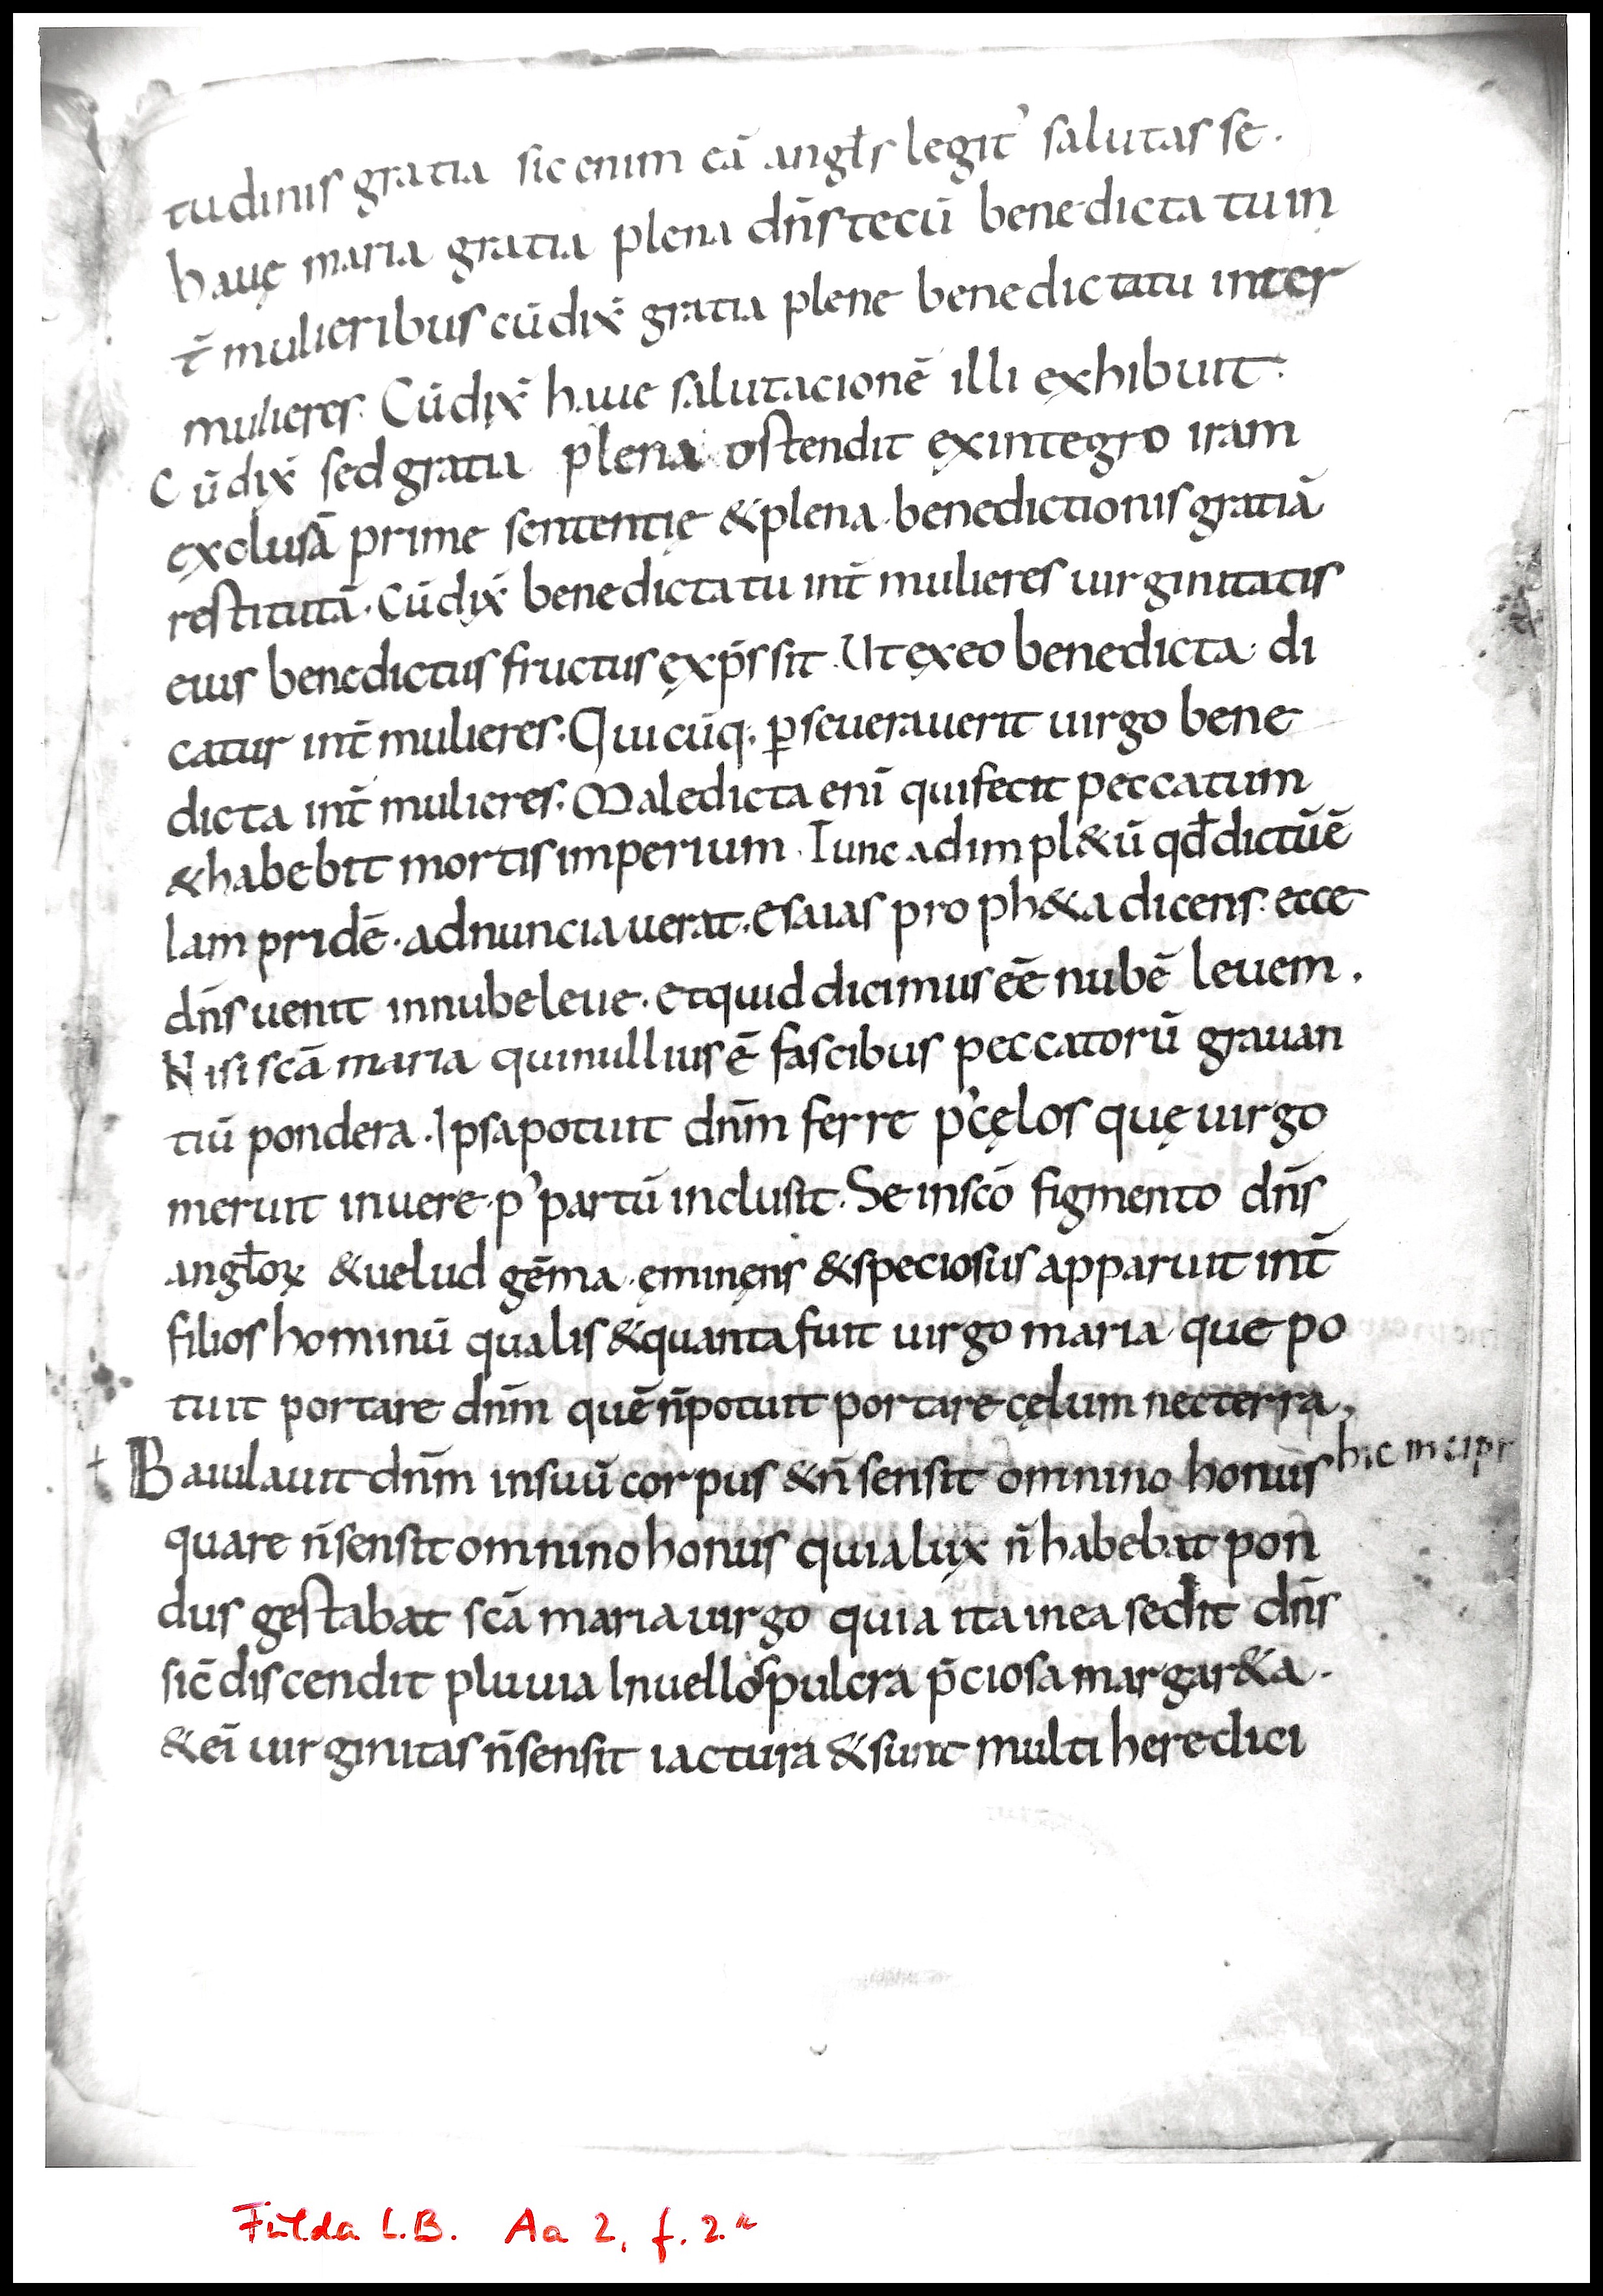 tudinis gratia sic enim eā angƚs legit᾽ salutasse.
hauę maria gratia plena dn̄s tecū benedicta tu in
t̄ mulieribus cū dix̄ gratia plene benedicta tu inter
mulieres. Cū dix̄ haue salutacionē illi exhibuit.
Cū dix̄ sed gratia plena ostendit exintegro iram
exclusā prime sententię & plena benedictionis gratiā
restitutā. Cū dix̄ benedicta tu int̄ mulieres uirginitatis
eius benedictus fructus exp̄ssit. Ut ex eo benedicta di
catur int̄ mulieres. Quicūq; ꝑseuerauerit uirgo bene
dicta int̄ mulieres. Maledicta enī qui fecit peccatum
& habebit mortis imperium. Tunc adimpl&ū qd̄ dictū ē
Iam pridē. adnunciauerat. esaias proph&a dicens. ecce
dn̄s uenit in nube leue. et quid dicimus eē nubē leuem.
Nisi scā maria qui nullius ē fascibus peccatorū grauan
tiū pondera. Ipsa potuit dn̄m ferre p᾽ cęlos quę uirgo
meruit inuere p᾽ partū inclusit. Se in scō figmento dn̄s
angƚoꝝ & uelud gēma. ęminęns & speciosus apparuit int̄
filios hominū qualis & quanta fuit uirgo maria que po
tuit portare dn̄m quē n̄ potuit portare cęlum nec terra,
† Baiulauit dn̄m in suū corpus & n̄ sensit omnino honus hic incipr
quare n̄ sensit omnino honus quia lux n̄ habebat pon
dus gestabat scā maria uirgo quia ita in ea sedit dn̄s
sic̄ discendit pluuia In uellos pulcra p̄ciosa margar&a.
& ei᾽ uirginitas n̄ sensit iactura & sunt multi heredici
Fulda L.B. Aa 2, f. 2.ʳ